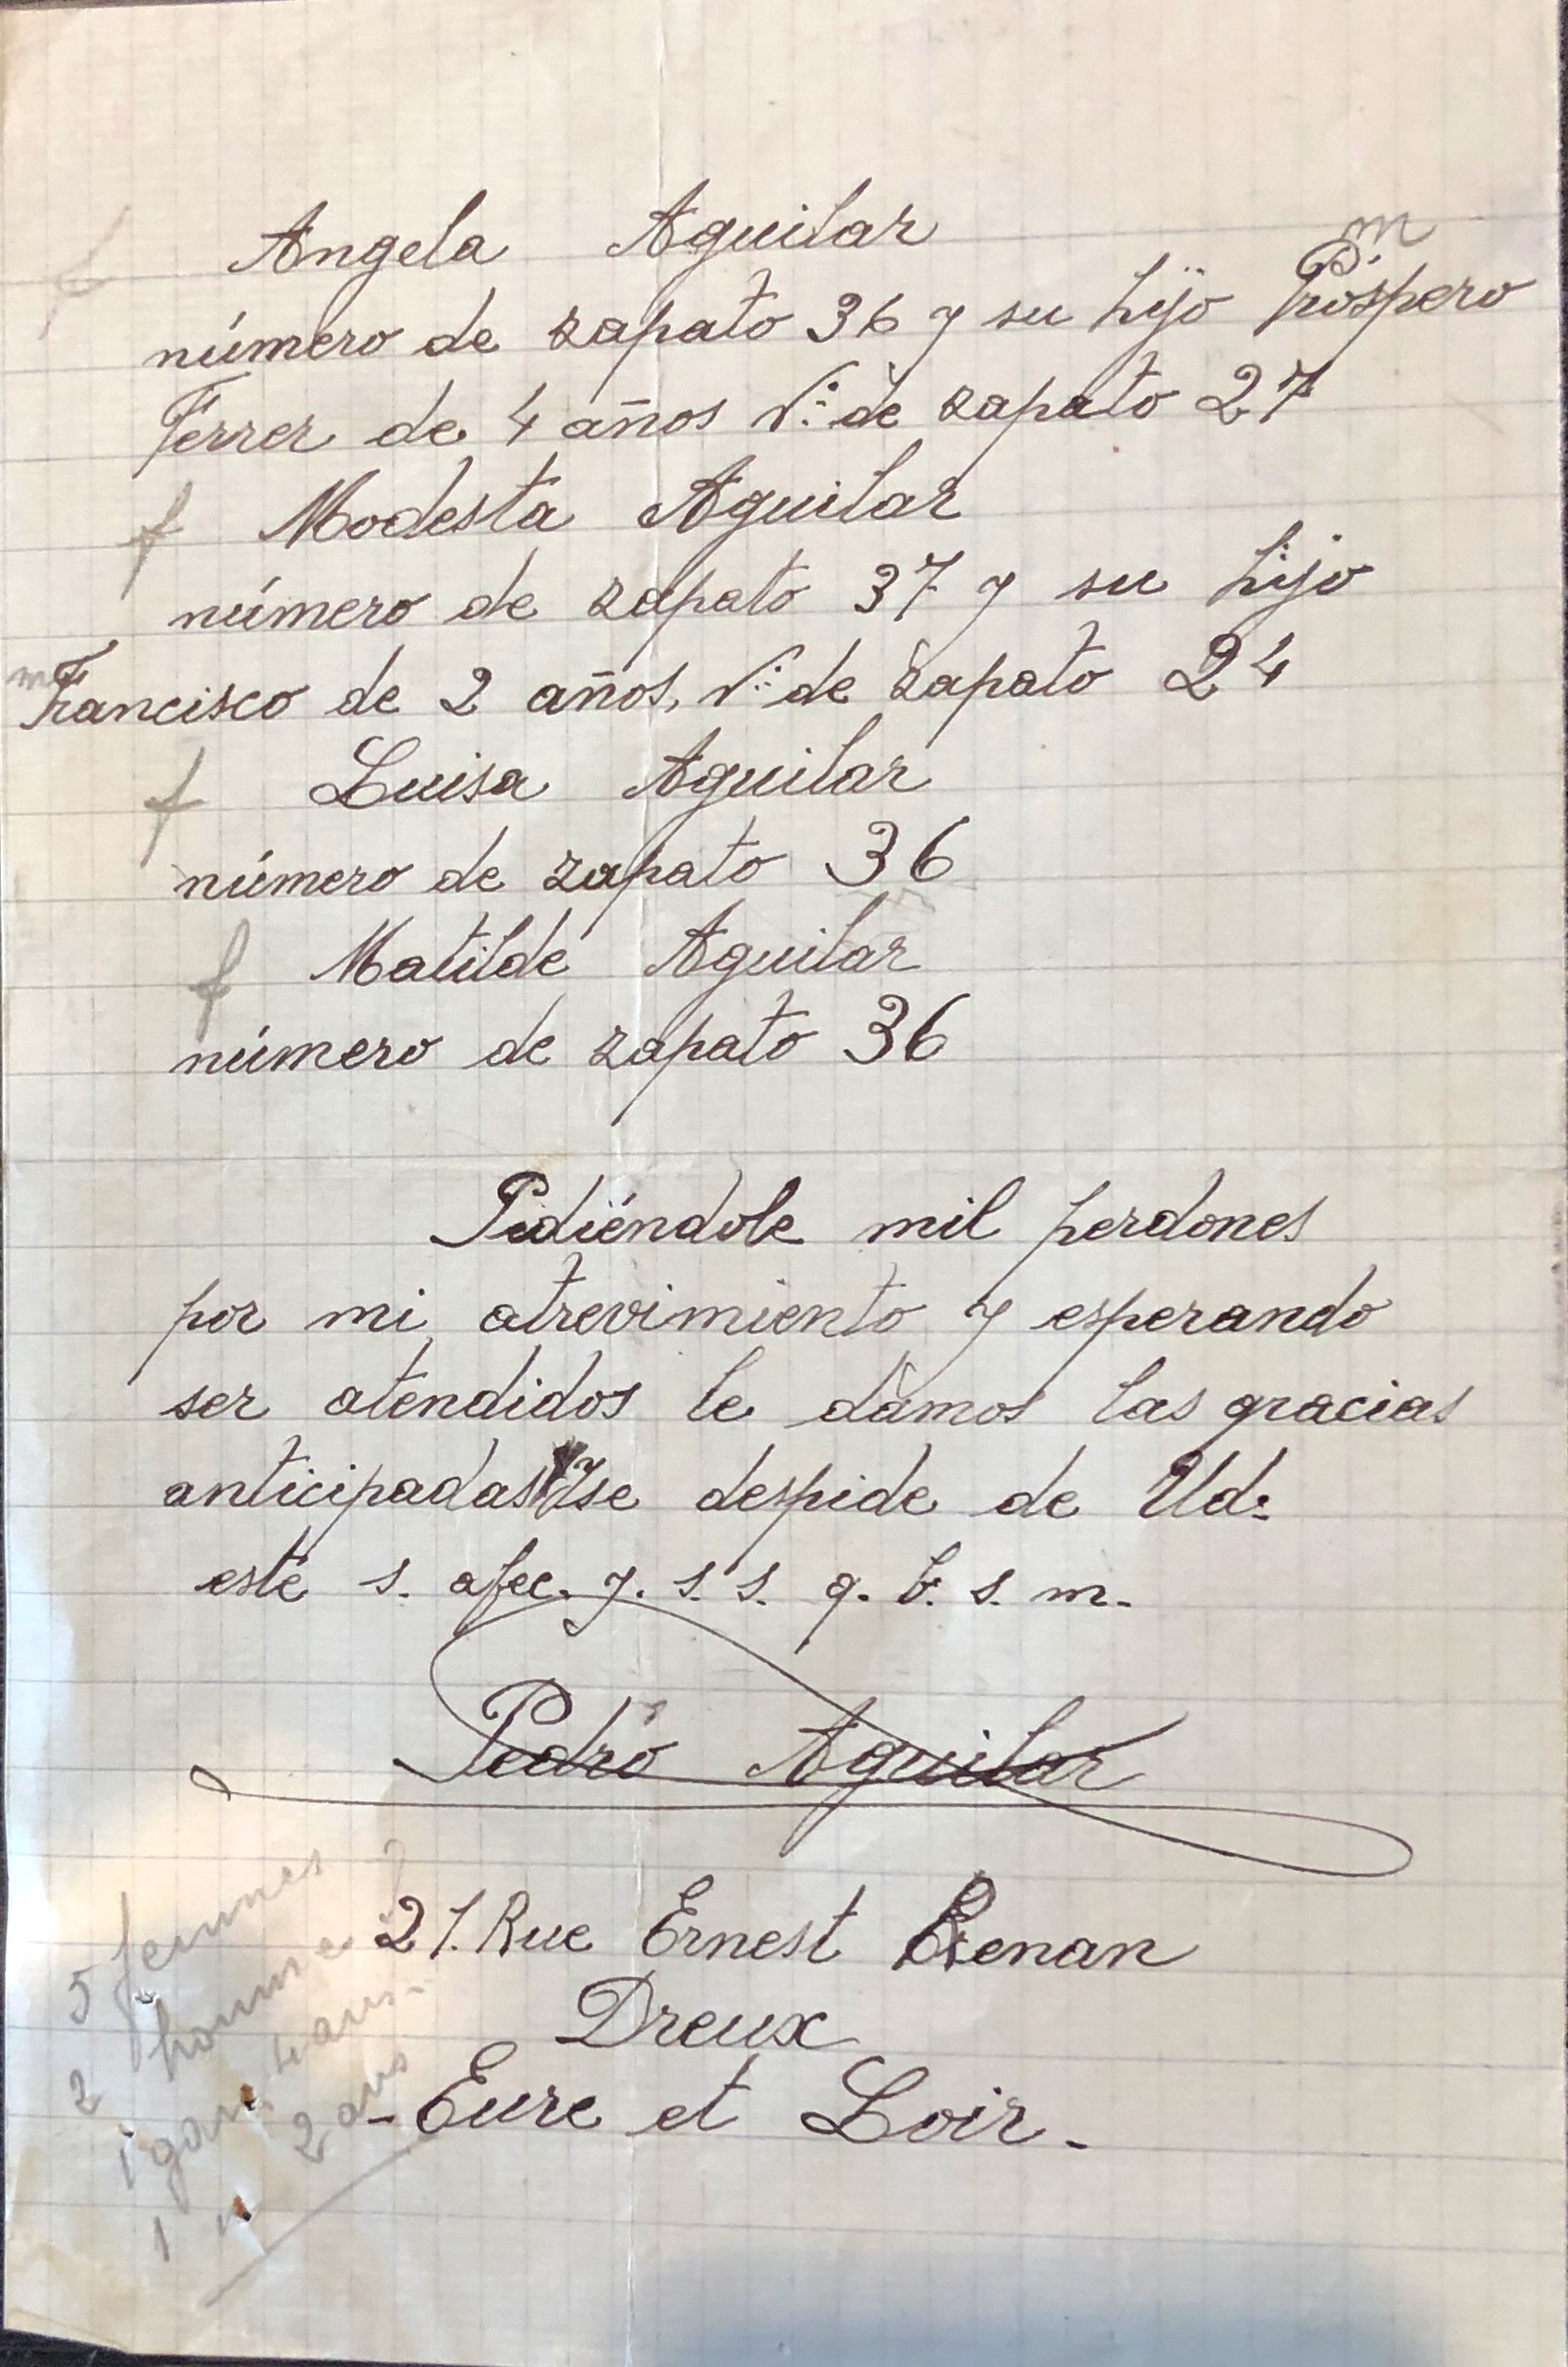 f Angela Aguilar
m
número de zapato 36 y su hijo Próspero
Ferrer de 4 años N.º de zapato 27
f Modesta Aguilar
número de zapato 37 y su hijo
m Francisco de 2 años, N.º de zapato 24
f Luisa Aguilar
número de zapato 36
f Matilde Aguilar
número de zapato 36
Pidiéndole mil perdones
por mi atrevimiento y esperando
ser atendidos le damos las gracias
anticipadas y se despide de Ud.
este s. afec. y. s. s. q. b. s. m.
Pedro Aguilar
21. Rue Ernest Renan
Dreux
- Eure et Loir -
5 femmes
2 hommes
1 garç. 4 ans.
1 " 2 ans